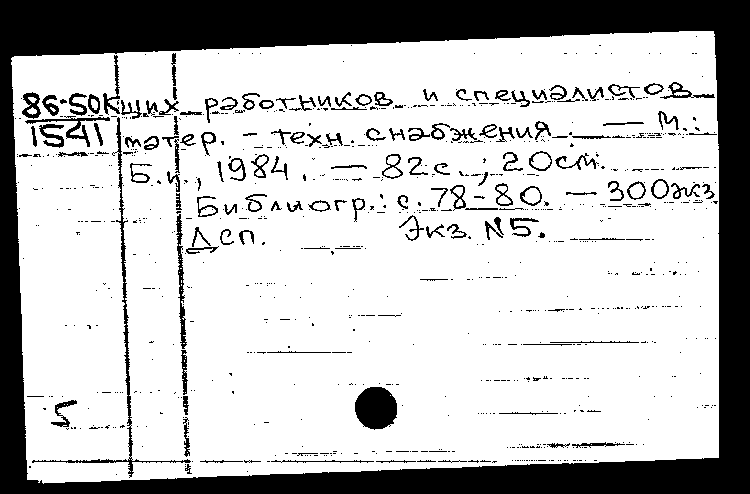 86-50К щих работников и специалистов
1541 матер. - техн. снабжения. — М.:
Б.и., 1984. — 82 с.; 20 см.
Библиогр.: с. 78-80. — 300 экз
Дсп. Экз. N5.
5